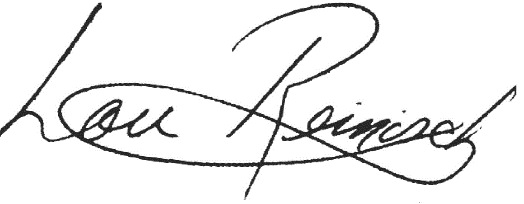 Lou Reinisch